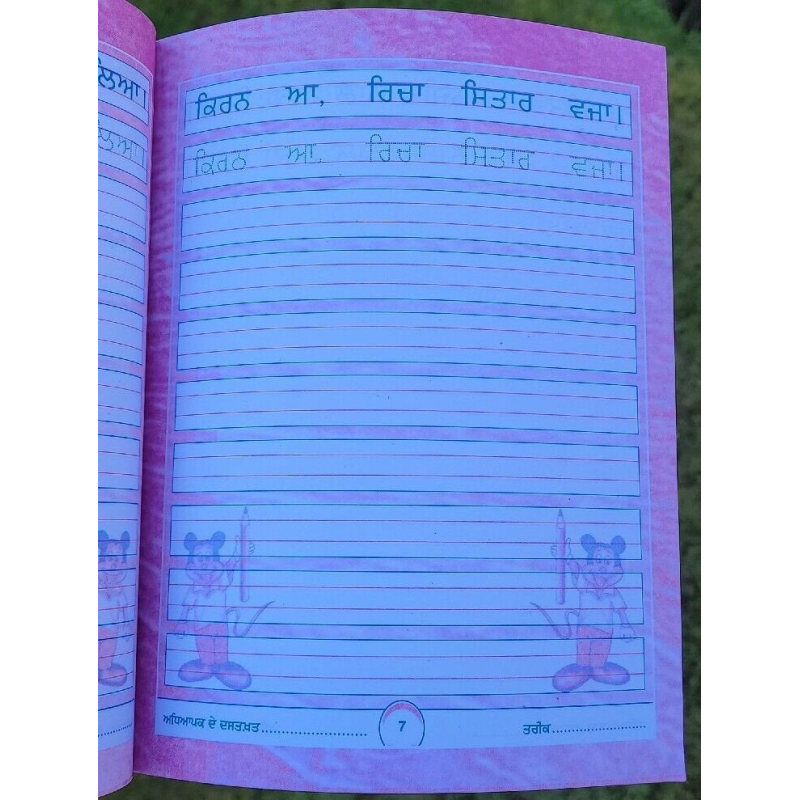 ਲਿਆ।
ਲਿਆ।
ਕਿਰਨ ਆ, ਰਿਚਾ ਸਿਤਾਰ ਵਜਾ।
ਕਿਰਨ ਆ, ਰਿਚਾ ਸਿਤਾਰ ਵਜਾ।
ਅਧਿਆਪਕ ਦੇ ਦਸਤਖ਼ਤ........................ 7 ਤਰੀਕ........................